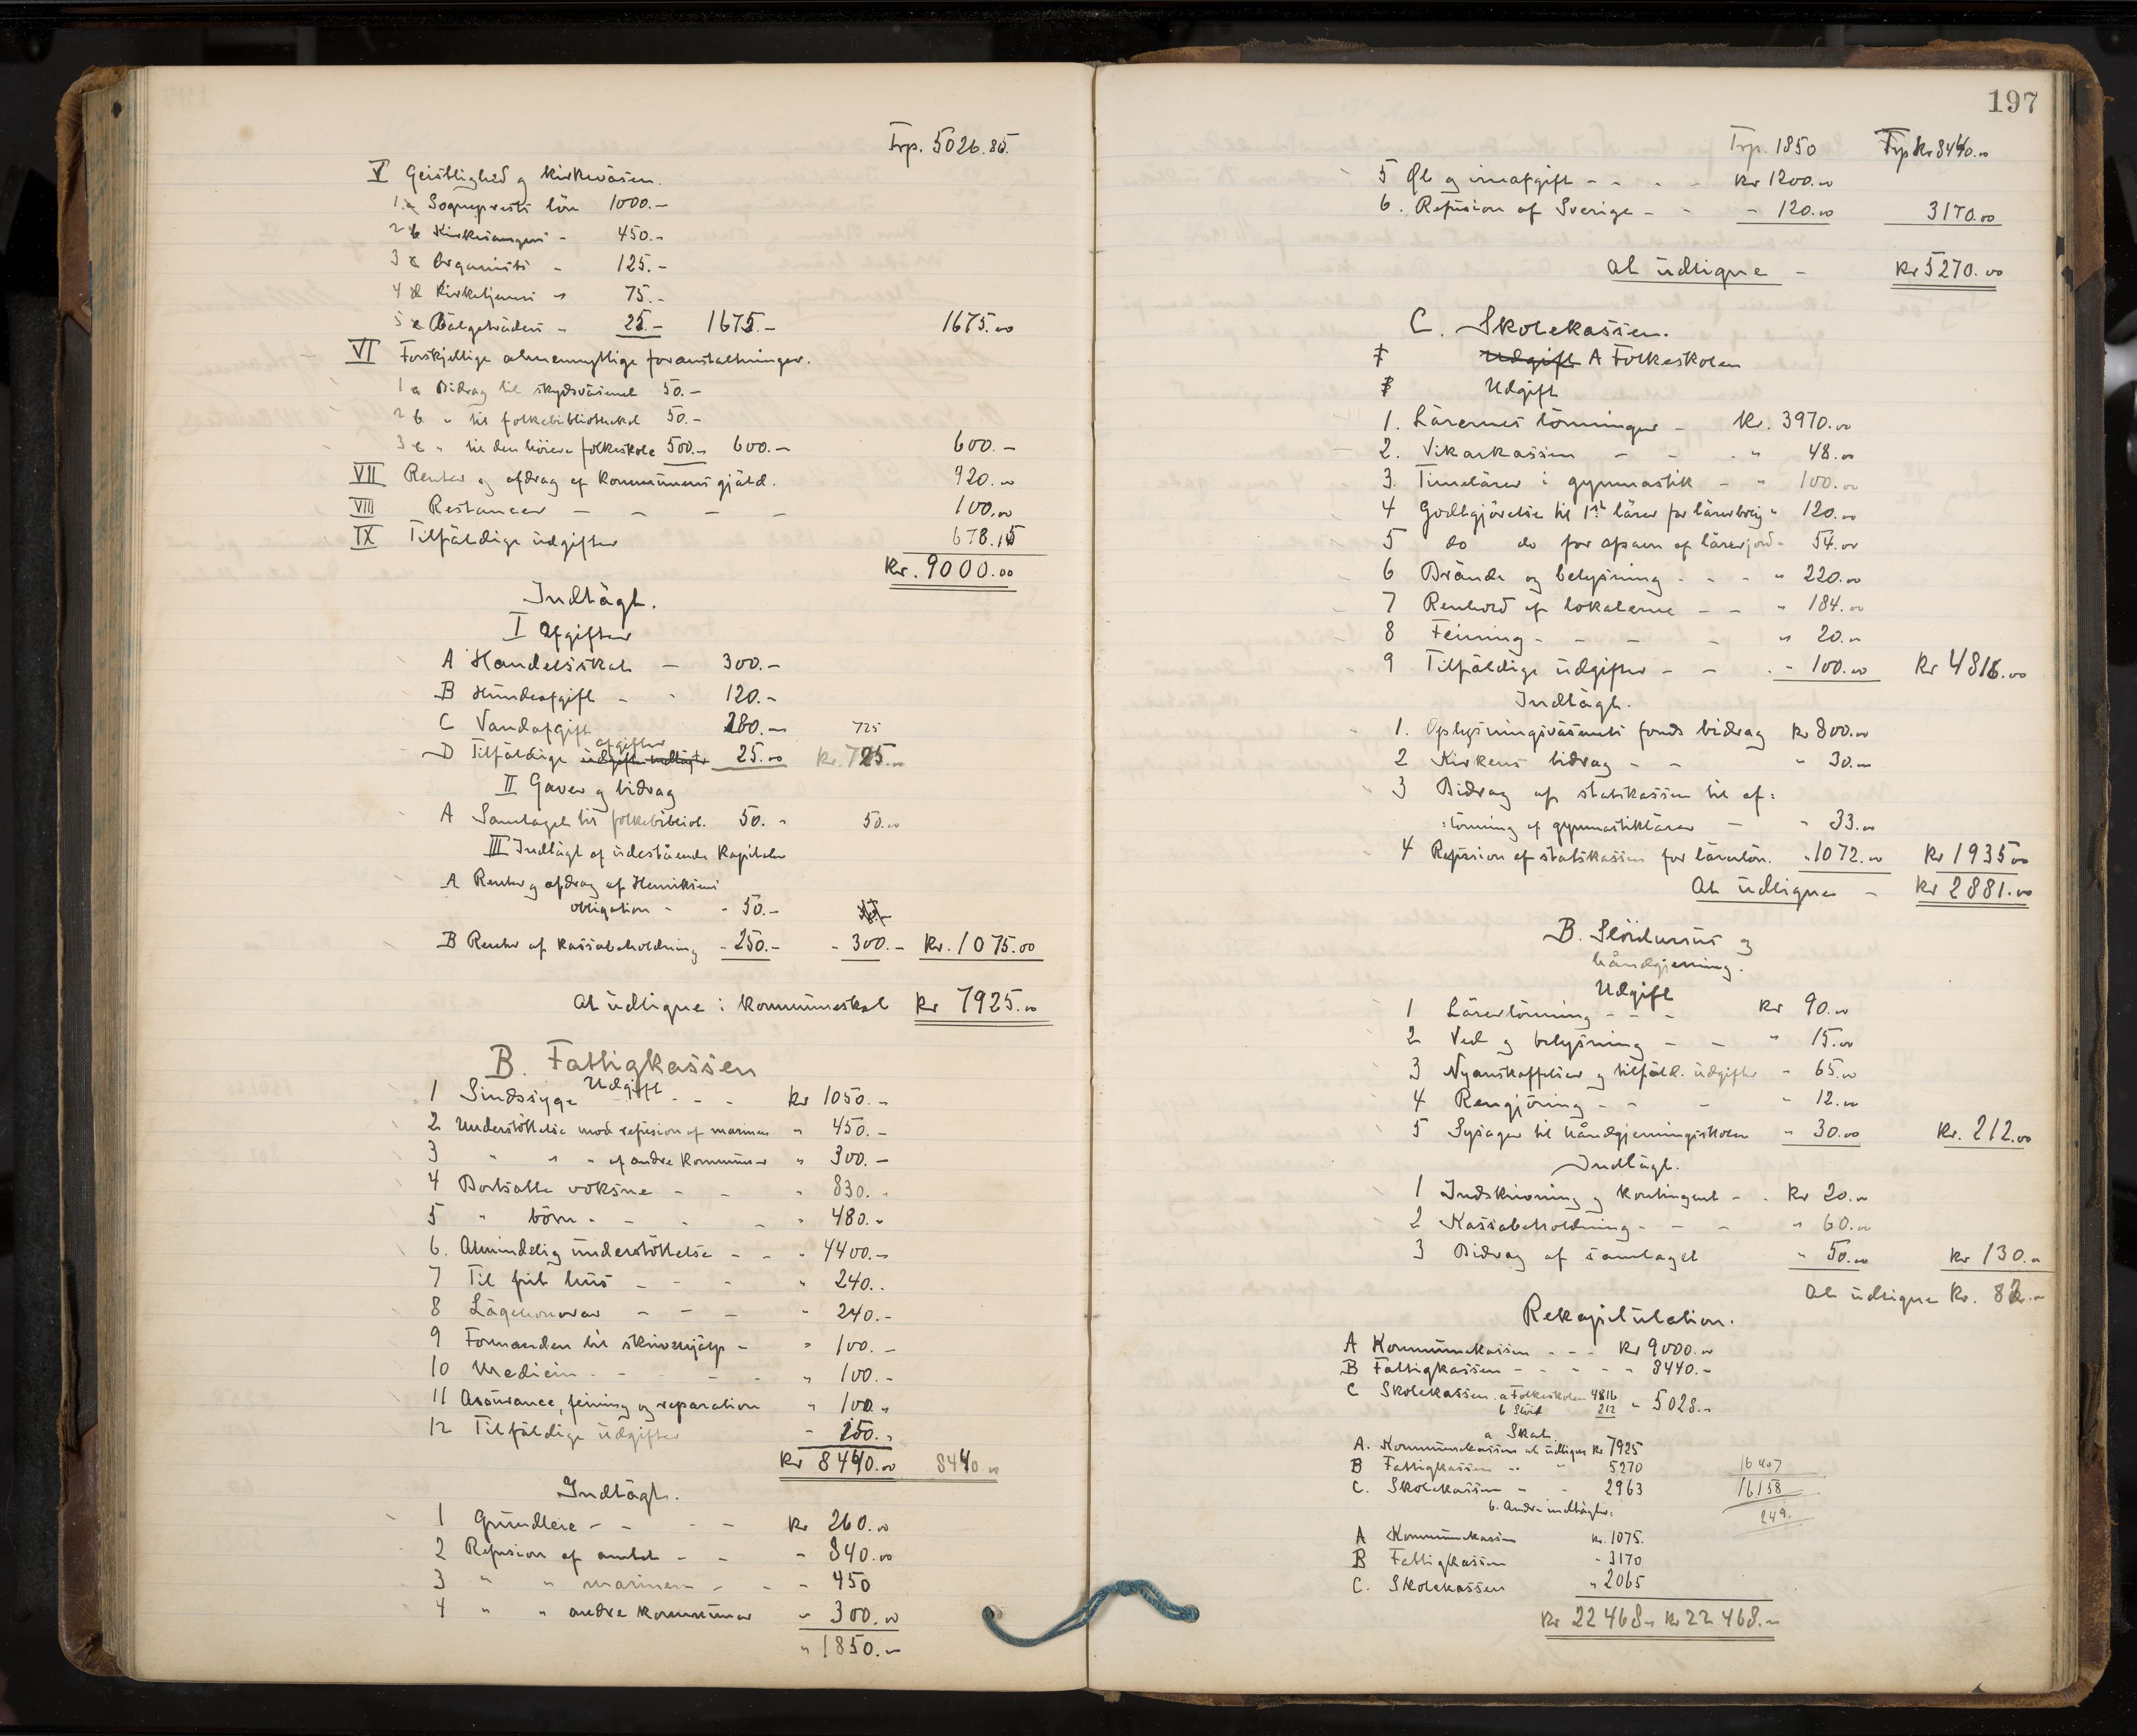 Trp. 5026.85.
V Geistlighed og kirkeväsen.
1 a Sogneprests lön 1000.-
2 b Kirkesangers - 450.-
3 c Organists - 125.-
4 d Kirketjeners " 75.-
5 e Bälgeträders - 25.- 1675.- 1675.00
VI Forskjellige almennyttige foranstaltninger.
1 a Bidrag til skydsväsenet 50.-
2 b " til folkebibliotheket 50.-
3 c " til den höiere folkeskole 500.- 600.- 600.-
VII Renter og afdrag af kommunens gjäld. 920.00
VIII Restancer - - - - 100.00
IX Tilfäldige udgifter 678.15
Kr. 9000.00
Indtägt.
I Afgifter
A Handelsskat - 300.-
B Hundeafgift - - 120.-
C Vandafgift 280.- 725
afgifter
D Tilfäldige 25.00 Kr. 725.00
II Gaver og bidrag
A Samlaget til folkebibliot. 50. - 50.00
III Indtägt af udestående kapitaler
A Renter og afdrag af Henriksens
obligation - - 50.-
B Renter af kassabeholdning - 250.- - 300.- Kr. 1075.00
At udligne i kommuneskat Kr 7925.00
B. Fattigkassen
Udgift
1 Sindssyge - - - Kr 1050.-
2 Understöttelse mod refusion af marinen " 450.-
3 " " " af andre kommuner " 300.-
4 Bortsatte voksne - - " 830.-
5 " börn - - - - " 480.-
6. Almindelig understöttelse - - " 4400.-
7 Til frit hus - - - " 240.-
8 Lägehonorar - - - " 240.-
9 Formanden til skrivehjälp - " 100.-
10 Medicin - - - - - " 100.-
11 Assurance, feining og reparation " 100.-
12 Tilfäldige udgifter - 250.-
Kr 8440.00 8440.00
Indtägt.
1 Grundleie - - - - Kr 260.00
2 Refusion af amtet - - - 840.00
3 " " marinen - - - 450
4 " " andre kommuner - 300.00
" 1850.-
197
Trp. 1850 Trp Kr 8440.00
5 Øl og vinafgift - - - - Kr 1200.00
6. Refusion af Sverige - - - 120.00 3170.00
At udligne - Kr 5270.00
C. Skolekassen.
Udgift A Folkeskolen
Udgift
1. Lärernes lönninger - Kr. 3970.00
2. Vikarkassen - - - " 48.00
3. Timelärer i gymnastik - " 100.00
4 Godtgjörelse til 1st lärer for 120.00
5 do do for afsavn af lärerjord - 54.00
6 Brände og belysning - - - " 220.00
7 Renhold af lokalerne - - " 184.00
8 Feining - - - - " 20.00
9 Tilfäldige udgifter - - - - 100.00 Kr 4816.00
Indtägt.
1. Oplysningsväsenets fonds bidrag Kr 800.00
2 Kirkens bidrag - - " 30.00
3 Bidrag af statskassen til af=
=lönning af gymnastiklärer - " 33.00
4 Refusion af statskassen for lärerlön. " 1072.00 Kr 1935.00
At udligne - Kr 2881.00
B. Slöidkursus og
håndgjerning.
Udgift
1 Lärerlönning - - - Kr 90.00
2 Ved og belysning - - " 15.00
3 Nyanskaffelser og tilfäld. udgifter - 65.00
4 Rengjöring - - - " 12.00
5 Sysager til håndgjerningsskolen " 30.00 Kr. 212.00
Indtägt.
1 Indskrivning og kontingent - - Kr 20.00
2 Kassabeholdning - - - " 60.00
3 Bidrag af samlaget " 50.00 Kr 130.00
At udligne Kr. 82.-
Rekapitulation.
A Kommunekassen - - - Kr 9000.00
B Fattigkassen - - - - - " 8440.-
C Skolekassen. a Folkeskolen 4816
b Slöid 212 " 5028.-
a Skat.
A. Kommunekassen at udligne Kr 7925
B Fattigkassen " " 5270 16407
C. Skolekassen - - 2963 16158
249.
b. Andre indtägter:
A Kommunekassen Kr. 1075.
B Fattigkassen - 3170
C. Skolekassen " 2065
Kr 22468.- Kr 22.468.-